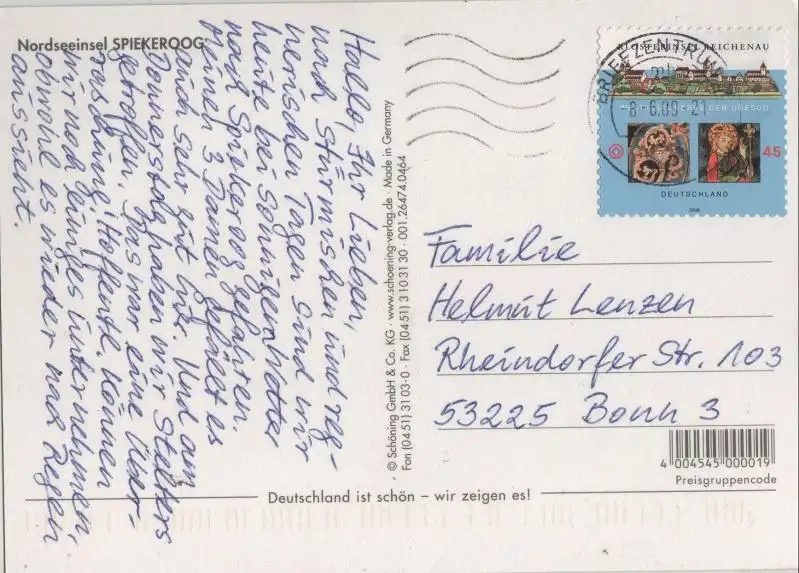 Nordseeinsel SPIEKEROOG
Hallo, Ihr Lieben,
nach stürmischen und reg-
nerischen Tagen sind wir
heute bei sonnigem Wetter
nach Spiekeroog gefahren.
Meinen 3 Damen gefällt es
auch sehr gut hier. Und am
Donnerstag haben wir Stelters
getroffen. Das war eine Über-
raschung! Hoffentl. können
wir noch einiges unternehmen,
obwohl es wieder nach Regen
aussieht.
© Schöning GmbH & Co. KG · www.schoening-verlag.de · Made in Germany
Fon (04 51) 31 03-0 · Fax (04 51) 3 10 31 30 · 001.26474.0464
KLOSTERINSEL REICHENAU
BRIEFZENTRUM
WELTKULTURERBE DER UNESCO
-8-6.09-21
45
DEUTSCHLAND
2008
Familie
Helmut Lenzen
Rheindorfer Str. 103
53225 Bonn 3
4 004545 000019
Preisgruppencode
Deutschland ist schön – wir zeigen es!